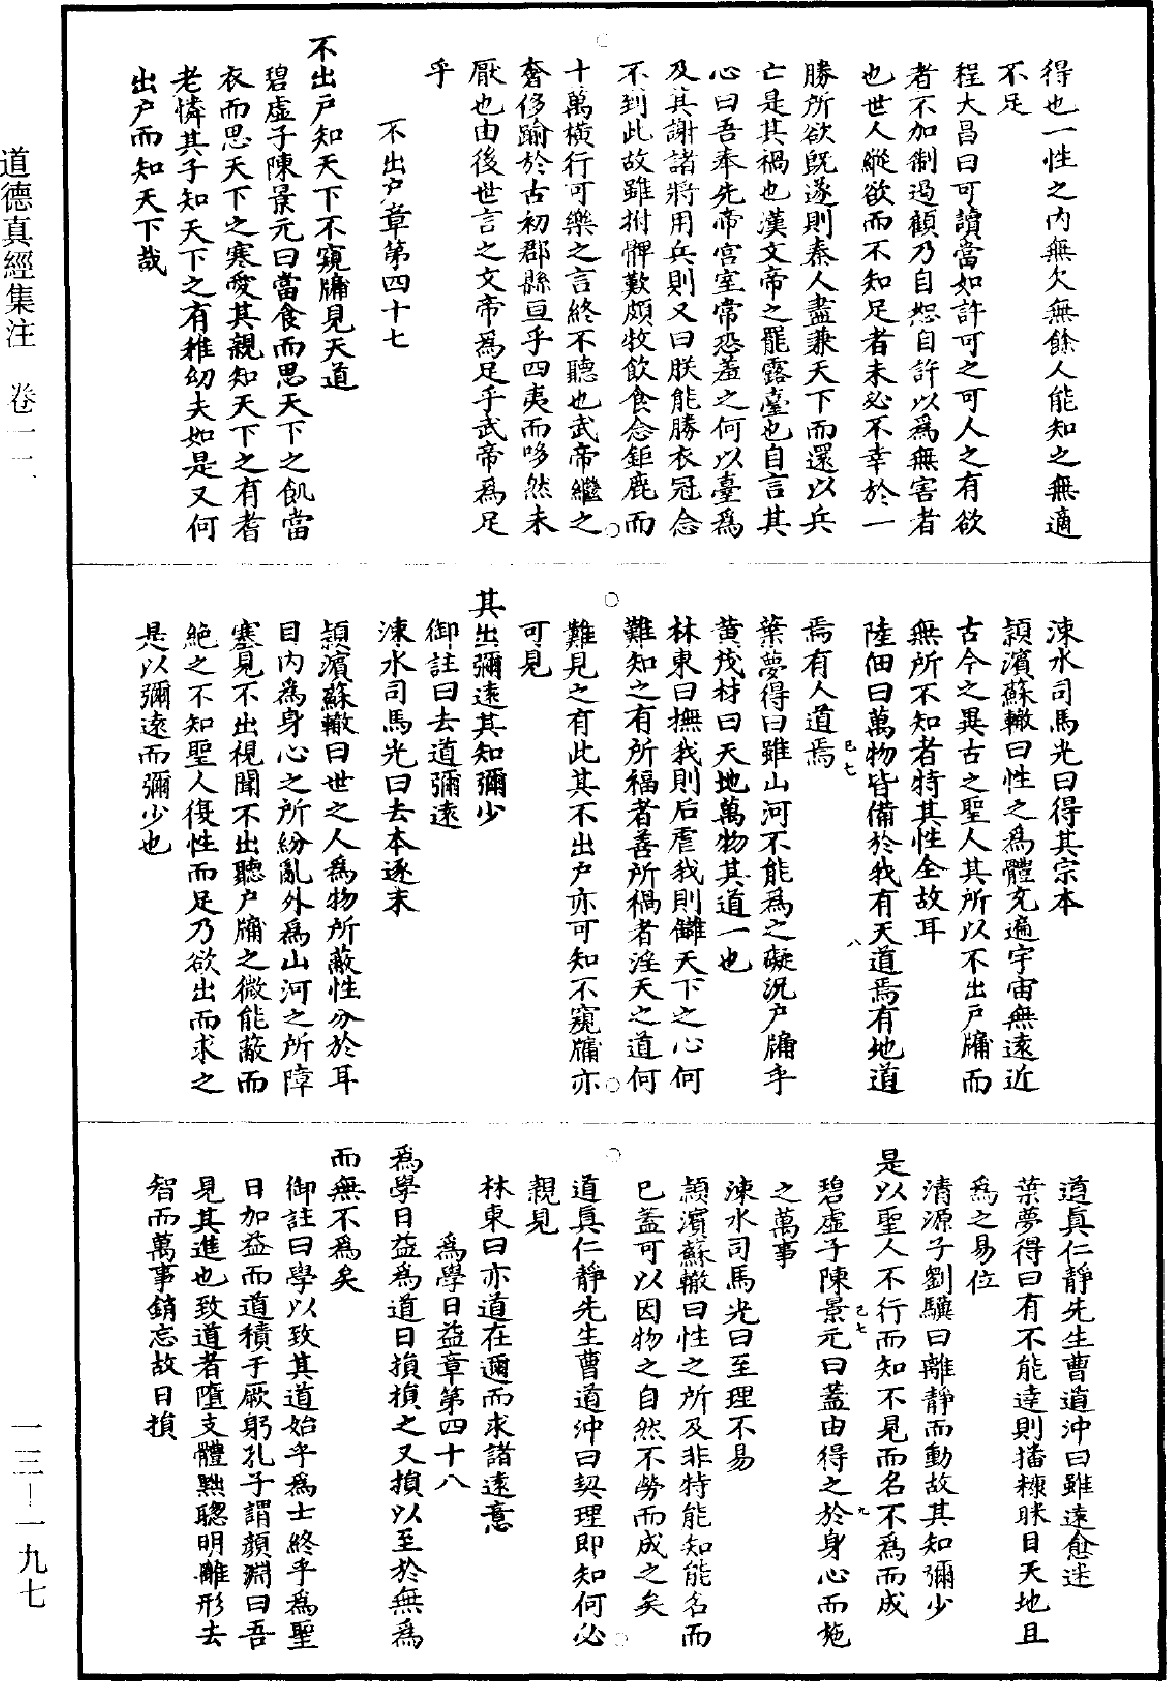 得也一性之內無欠無餘人能知之無適
不足
程大昌曰可讀當如許可之可人之有欲
者不加制遏顧乃自恕自許以爲無害者
也世人縱欲而不知足者未必不幸於一
勝所欲旣遂則秦人盡兼天下而還以兵
亡是其禍也漢文帝之罷露臺也自言其
心曰吾奉先帝宮室常恐羞之何以臺爲
及其謝諸將用兵則又曰朕能勝衣冠念
不到此故雖拊髀歎頗牧飲食念鉅鹿而
十萬橫行可樂之言終不聽也武帝繼之
奢侈踰於古初郡縣亘乎四夷而哆然未
厭也由後世言之文帝爲足乎武帝爲足
乎
不出户章第四十七
不出戸知天下不窺牖見天道
碧虛子陳景元曰當食而思天下之飢當
衣而思天下之寒愛其親知天下之有耆
老憐其子知天下之有稚幼夫如是又何
出户而知天下哉
涑水司馬光曰得其宗本
頴濱蘇轍曰性之爲體充遍宇宙無遠近
古今之異古之聖人其所以不出戸牖而
無所不知者特其性全故耳
陸佃曰萬物皆備於我有天道焉有地道
焉有人道焉
葉夢得曰雖山河不能爲之礙況户牖乎
黄茂材曰天地萬物其道一也
林東曰撫我則后虐我則讎天下之心何
難知之有所福者善所禍者淫天之道何
難見之有此其不出户亦可知不窺牖亦
可見
其出彌遠其知彌少
御註曰去道彌遠
涑水司馬光曰去本逐末
頴濱蘇轍曰世之人爲物所蔽性分於耳
目內爲身心之所紛亂外爲山河之所障
塞見不出視聞不出聽户牖之微能蔽而
絶之不知聖人復性而足乃欲出而求之
是以彌遠而彌少也
道眞仁靜先生曹道沖曰雖遠愈迷
葉夢得曰有不能達則播糠眯目天地且
爲之易位
清源子劉驥曰離靜而動故其知彌少
是以聖人不行而知不見而名不爲而成
碧虛子陳景元曰蓋由得之於身心而施
之萬事
涑水司馬光曰至理不易
頴濱蘇轍曰性之所及非特能知能名而
已蓋可以因物之自然不勞而成之矣
道眞仁靜先生曹道沖曰契理即知何必
親見
林東曰亦道在邇而求諸遠意
爲學日益章第四十八
爲學日益爲道日損損之又損以至於無爲
而無不爲矣
御註曰學以致其道始乎爲士終乎爲聖
日加益而道積于厥躬孔子謂顏淵曰吾
見其進也致道者墮支體黜聰明離形去
智而萬事銷忘故日損
道德真經集注 卷一一
一三—一九七